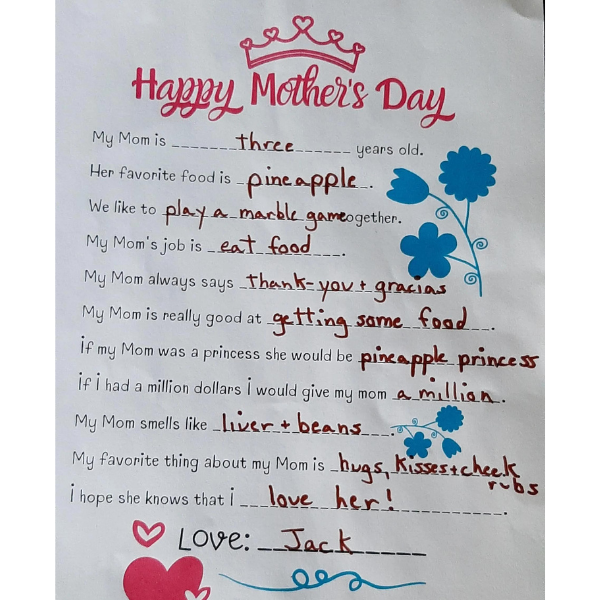 Happy Mother's Day
My Mom is three years old.
Her favorite food is pineapple.
We like to play a marble game ogether.
My Mom's job is eat food.
My Mom always says thank-you + gracias
My Mom is really good at getting some food.
if my Mom was a princess she would be pineapple princess
if i had a million dollars i would give my mom a million.
My Mom smells like liver + beans.
My favorite thing about my Mom is hugs, kisses + cheek
rubs
i hope she knows that i love her!.
LOVE: Jack